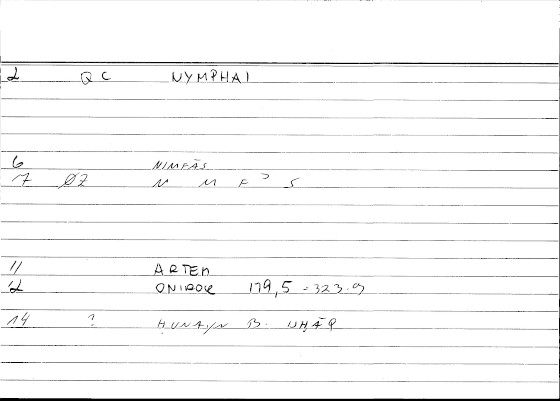 2 QC NYMPHAI
6 NIMFĀS
7 ØZ N M F S
11 ARTEM
12 ONIROK 179,5 = 323.9
14 ? ḤUNAYN B. ISḤĀQ